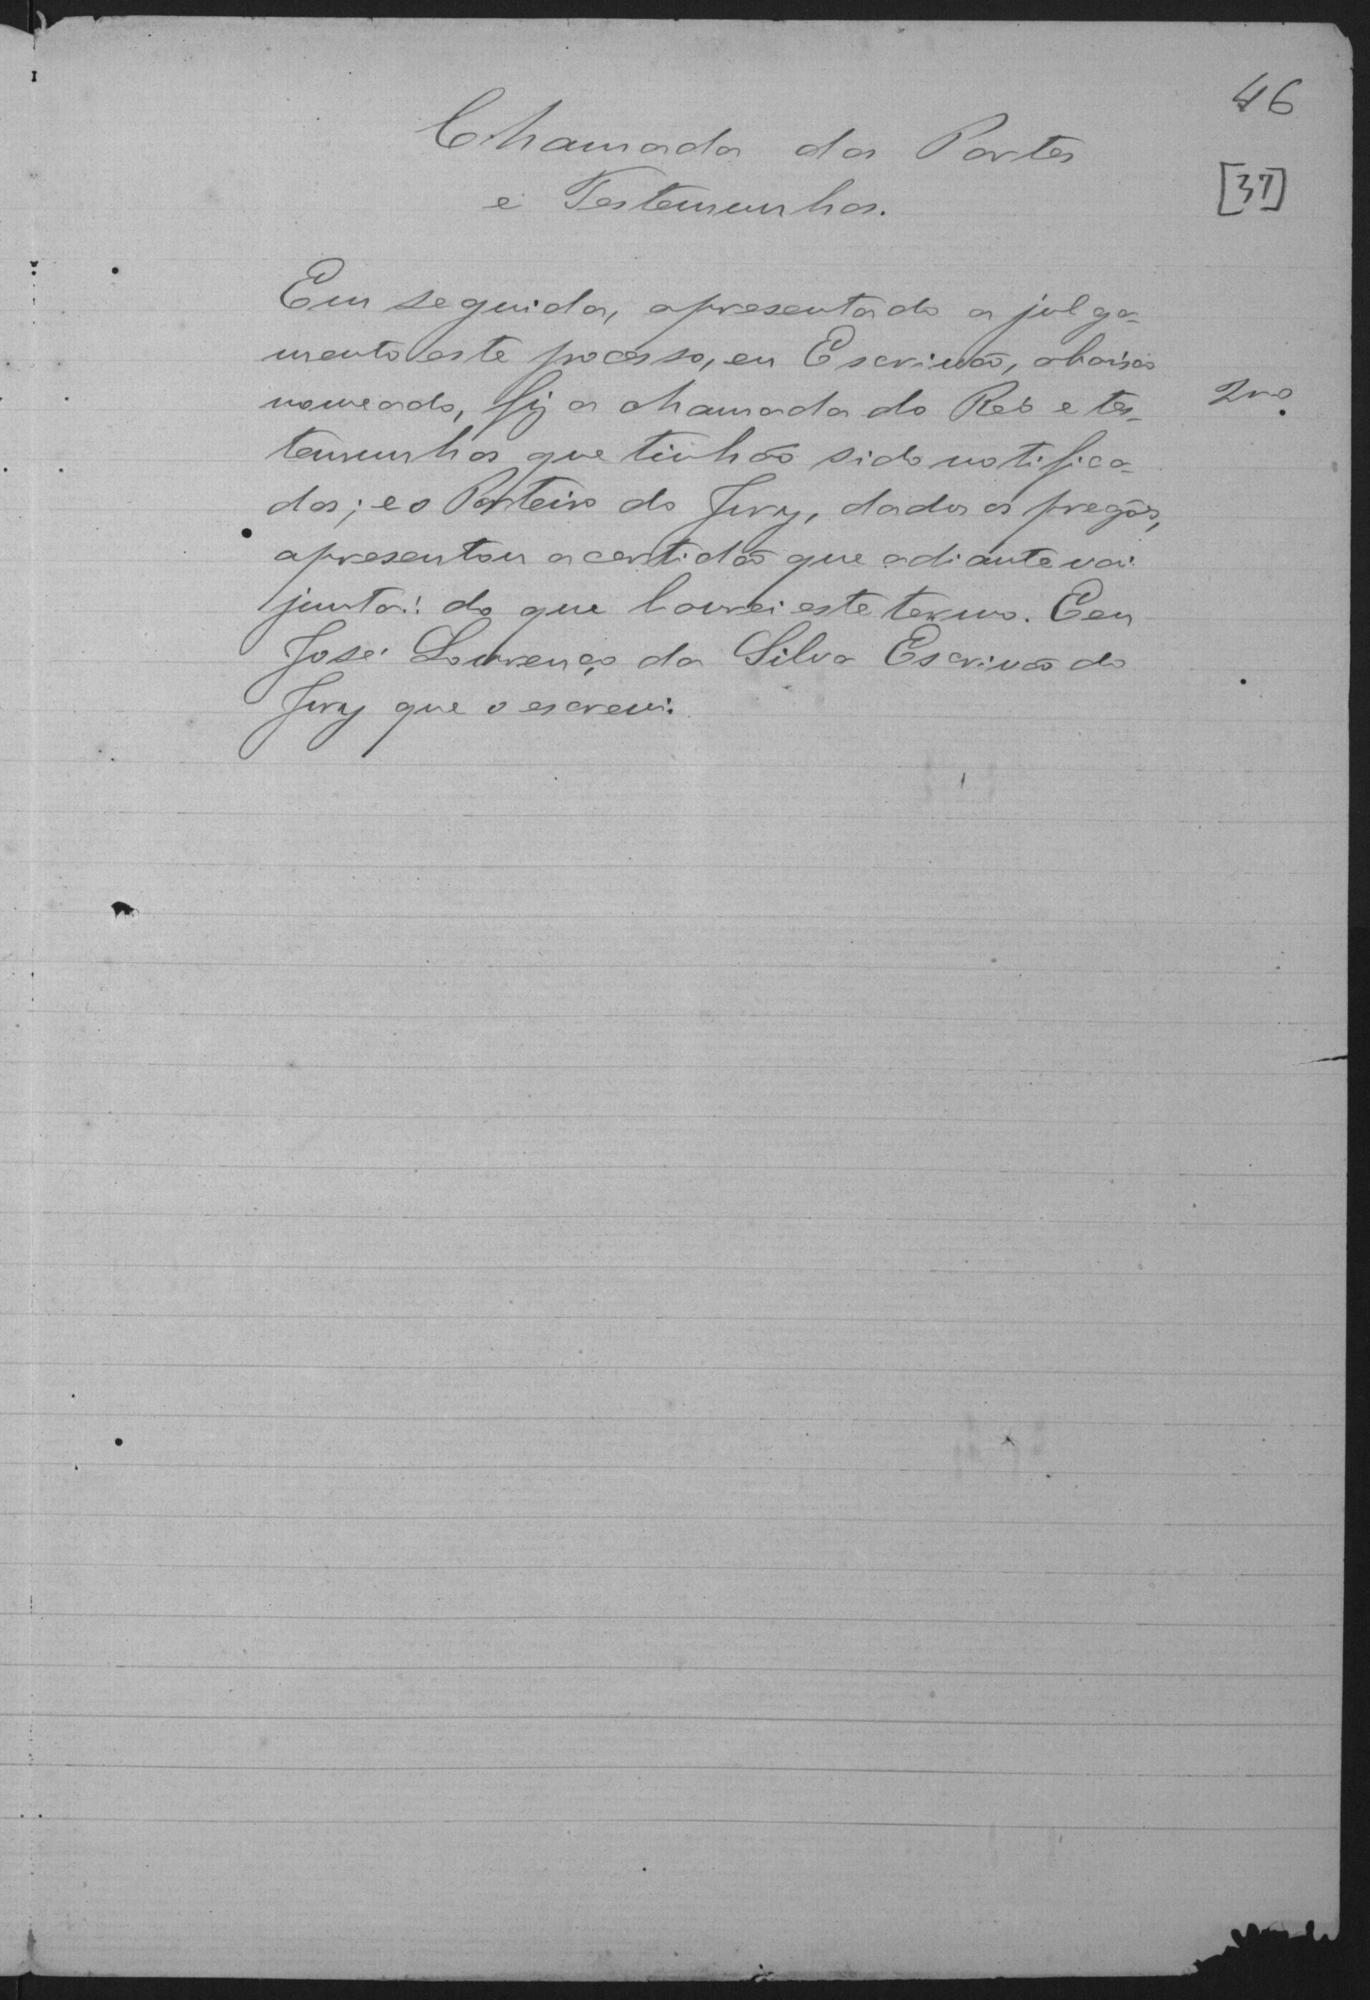 46
[37]
Chamada das Partes
e Testemunhas.
Em seguida, apresentado a julga-
mento este processo, eu Escrivão, abaixo
nomeado, fiz a chamada do Reo e tes-
temunhas que tinhão sido notifica-
das; e o Porteiro do Jury, dados os pregões,
apresentou a certidão que adiante vai
junta: do que lavrei este termo. Eeu
José Lourenço da Silva Escrivão do
Jury que o escrevi.